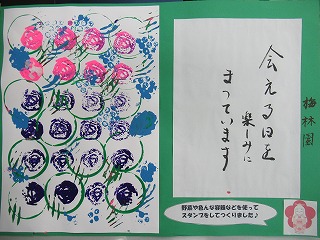 会える日を
楽しみに
まっています
梅林園
野菜や色んな容器などを使って
スタンプをしてつくりました♪